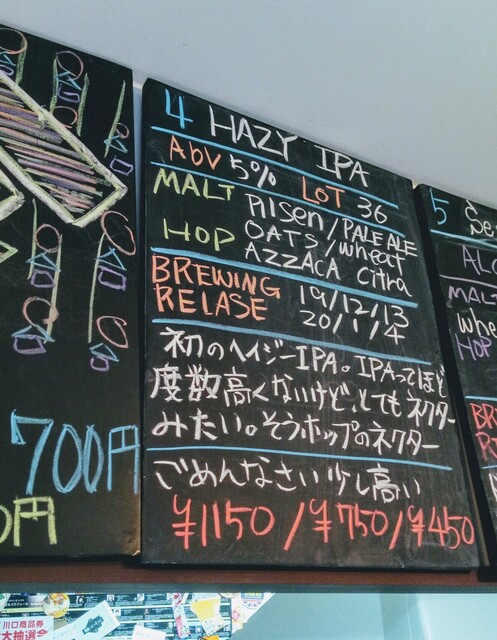 700円
0円
4 HAZY IPA
ABV 5% LOT 36
MALT Pilsen/PALE ALE
OATS/wheat
HOP AZZACA Citra
BREWING 19/12/13
RELASE 20/1/4
初のヘイジーIPA。IPAってほど
度数高くないけど、とてもネクター
みたい。そうホップのネクター
ごめんなさい少し高い
¥1150/¥750/¥450
5 Se
ALC
MALT
Whe
HOP
BR
R
川口商品券
大抽選会